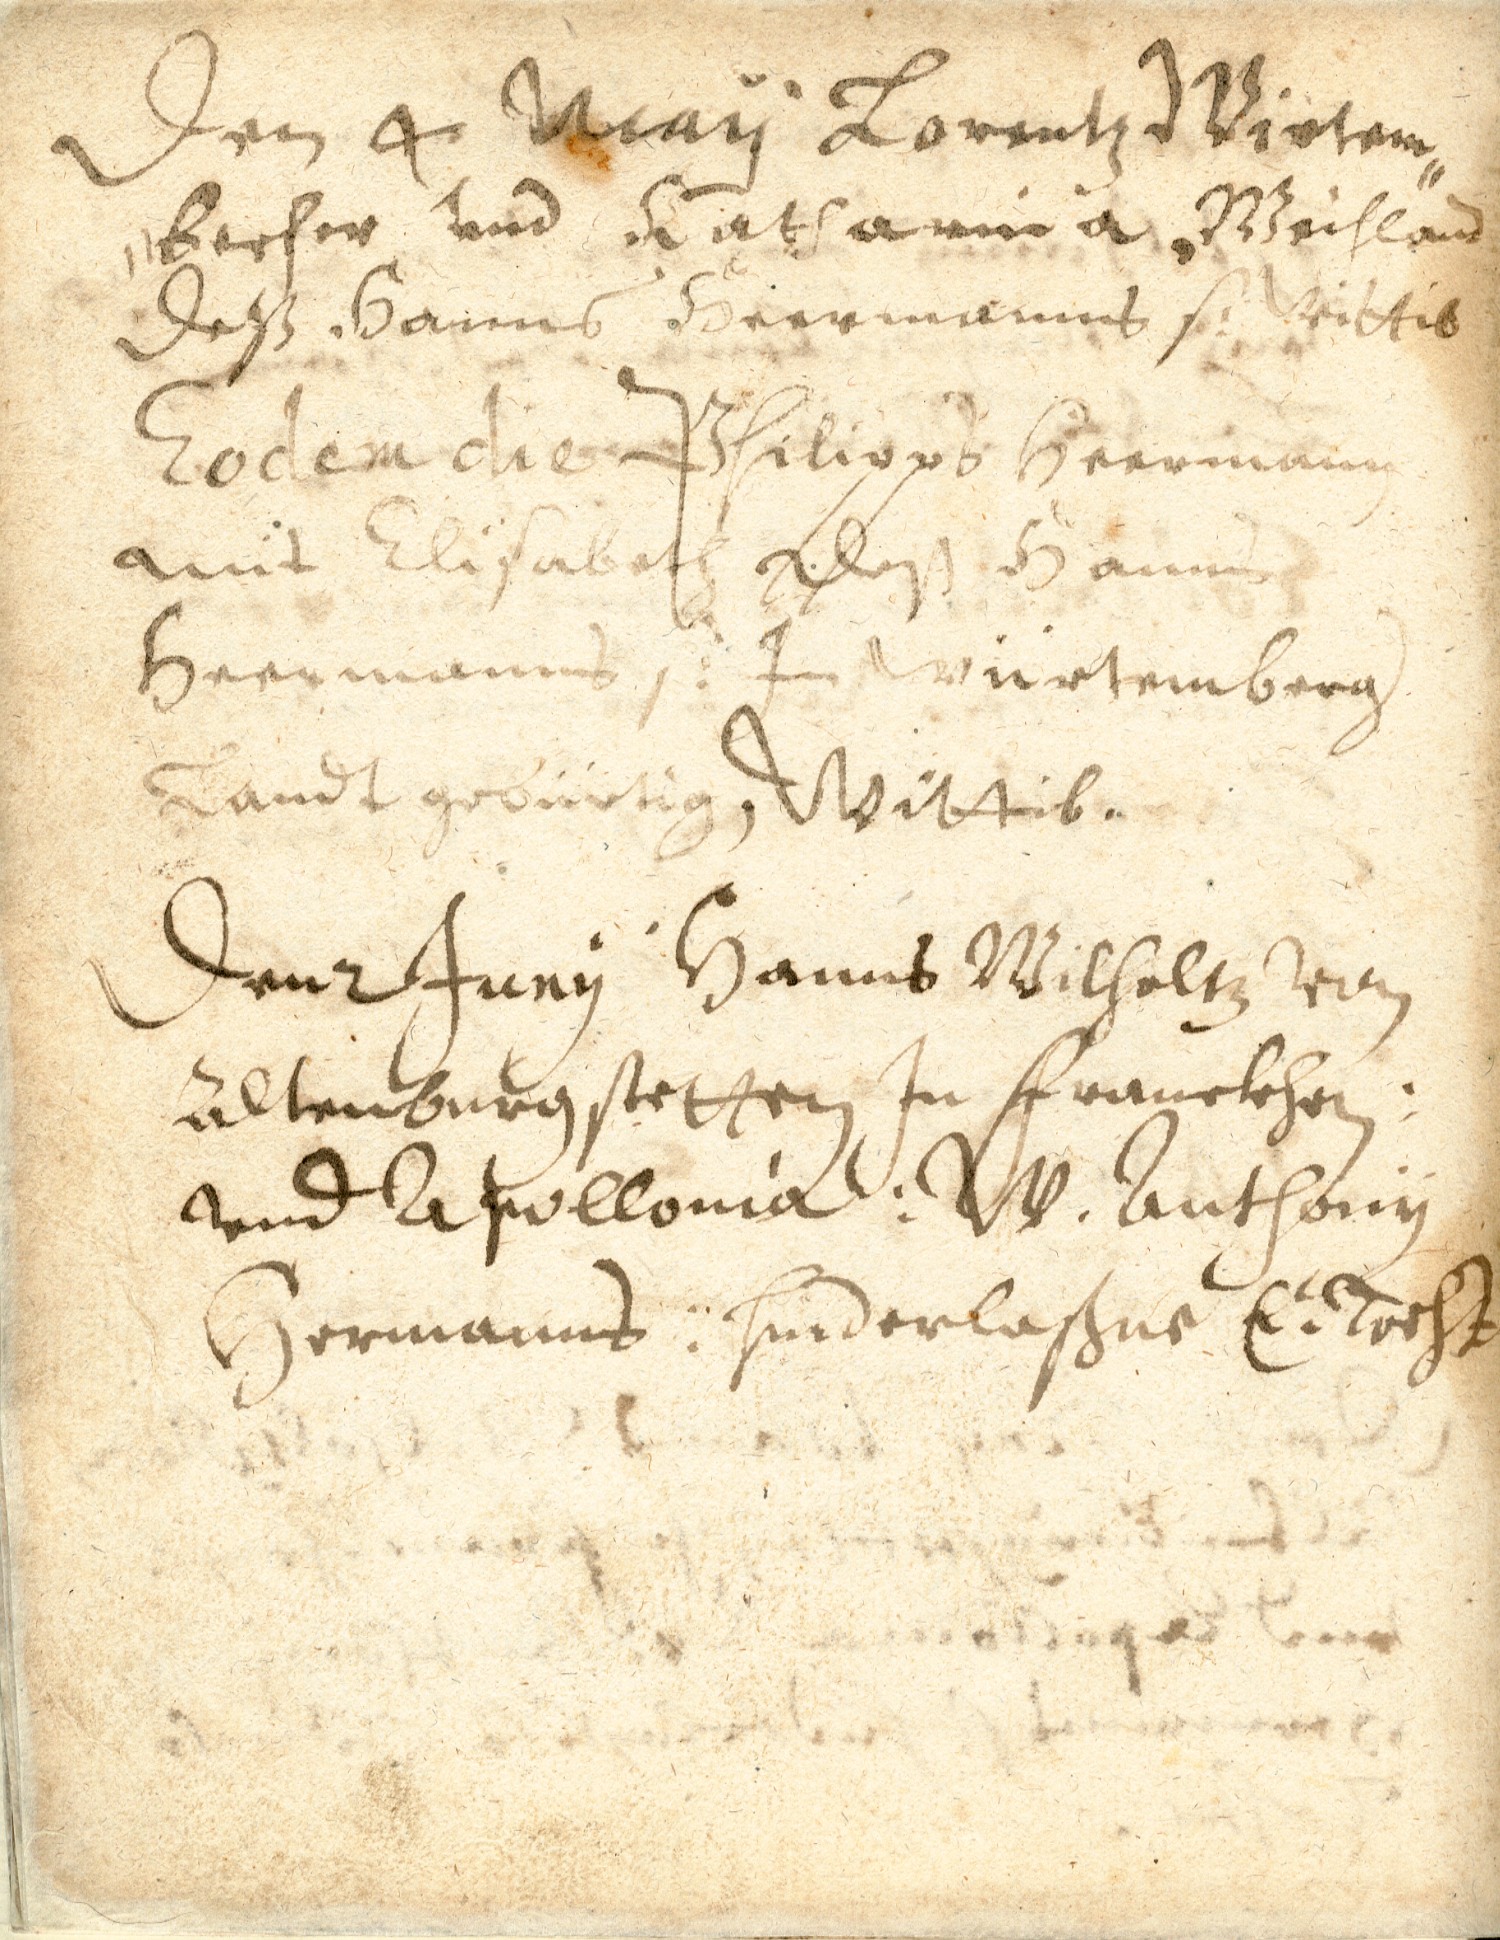 Den 4. Maÿ Lorentz Wirtem„
„bercher vnd Catharina, Weiland
Deß Hanns Heermanns s: wittib
Eodem die Philipps Heermann
mit Elisabeth Deß Hanns
Heermanns s: In Würtemberg
Landt gebürtig, Wittib.
Den 2 Junÿ Hanns Wilholtz von
Altenburgstetten In Franckhen:
vnd Apollonia: W. Anthonÿ
Hermanns: hinderlaßne E: Tocht